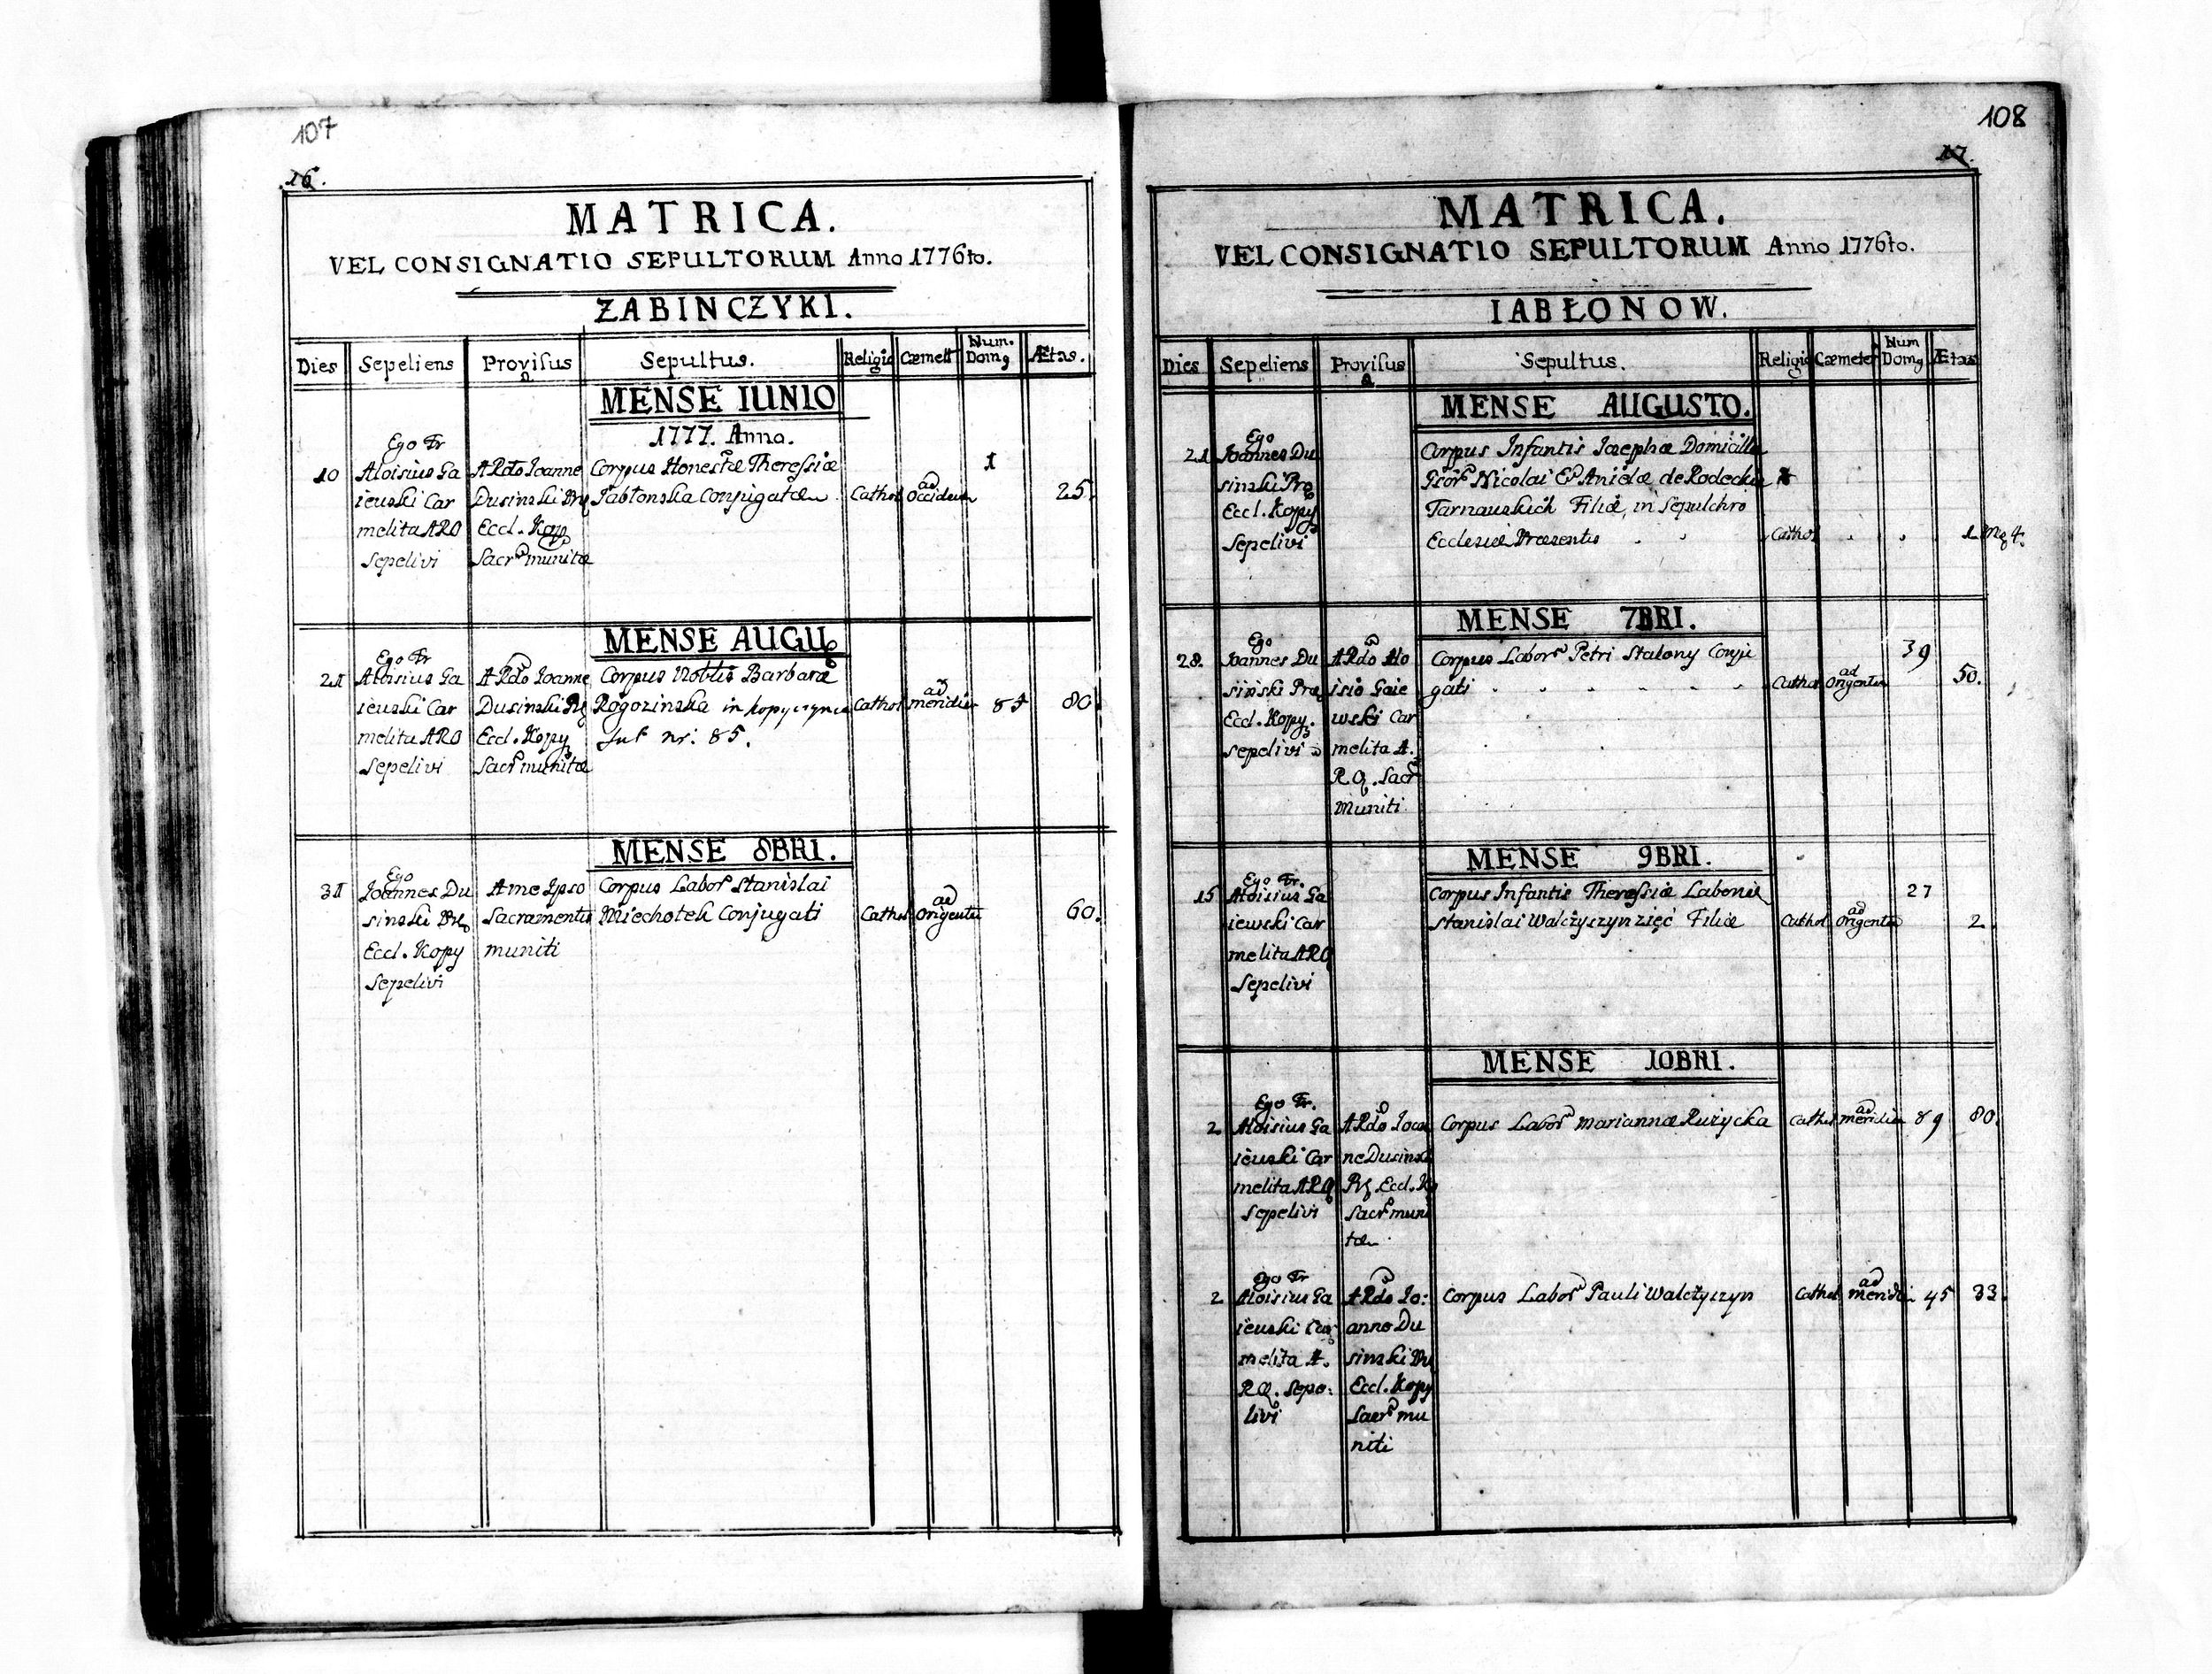 107
16.
MATRICA.
VEL CONSIGNATIO SEPULTORUM Anno 1776to.
ZABINCZYKI.
Dies Sepeliens Provisus a Sepultus. Religio Cæmett Num. Domq Ætas.
MENSE IUNIO
1777. Anno.
10
Ego Fr
Aloisius Ga
iewski Car
melita ARO
Sepelivi
ARdo Ioanne
Dusinski
Eccl. Kop
Sacr munitæ
Corpus Honestæ Theressiæ
Jabłonska Conjugatæ
Cathol
ad
Occiden
1
25.
MENSE AUGU
21
Ego Fr
Aloisius Ga
iewski Car
melita ARO
Sepelivi
ARdo Ioanne
Dusinski
Eccl. Kopy
Sacr munitæ
Corpus Noblis Barbaræ
Rogozinska in Kopyczynce
Sub nr: 85.
Cathol
ad
meridie
85
80.
MENSE 8BRI.
31
Ego
Joannes Du
sinski
Eccl. Kopy
Sepelivi
A me Ipso
Sacramentis
muniti
Corpus Labor Stanislai
Miechotek Conjugati
Cathol
ad
Origente
60.
108
17.
MATRICA.
VEL CONSIGNATIO SEPULTORUM Anno 1776to.
IABŁONOW.
Dies Sepeliens Provisus a Sepultus. Religio Cæmeter Num Domq Ætas
MENSE AUGUSTO.
21
Ego
Joannes Du
sinski Præ
Eccl. Kopy
Sepelivi
Corpus Infantis Iosephæ Domicillæ
Nicolai Et Anielæ de Rodeckie
Tarnauskich Filiæ, in Sepulchro
Ecclesiæ Præsentis
Cathol
1 Mq 4.
MENSE 7BRI.
28.
Ego
Joannes Du
sinski Præ
Eccl. Kopy.
sepelivi
ARdo Alo
isio Gaie
wski Car
melita A.
RO. Sacr
Muniti
Corpus Labor Petri Stalony Conju
gati
Cathol
ad
Origente
39
50.
MENSE 9BRI.
15
Ego Fr.
Aloisius Ga
iewski Car
melita ARO
Sepelivi
Corpus Infantis Theressiæ
Stanislai Walczyszyn zięć Filiæ
Cathol
ad
Origente
27
2.
MENSE 10BRI.
2
Ego Fr.
Aloisius Ga
iewski Car
melita ARO
Sepelivi
ARdo Ioa
ne Dusinsk
Eccl. K
Sacr muni
tæ
Corpus Labor Mariannæ Ruzycka
Cathol
ad
meridie
89
80.
2
Ego Fr
Aloisius Ga
iewski Car
melita A.
RO. Sepe:
livi
ARdo Io:
anne Du
sinski
Eccl. Kopy
Sacr mu
niti
Corpus Labor Pauli Walczyszyn
Cathol
ad
meridi
45
33.